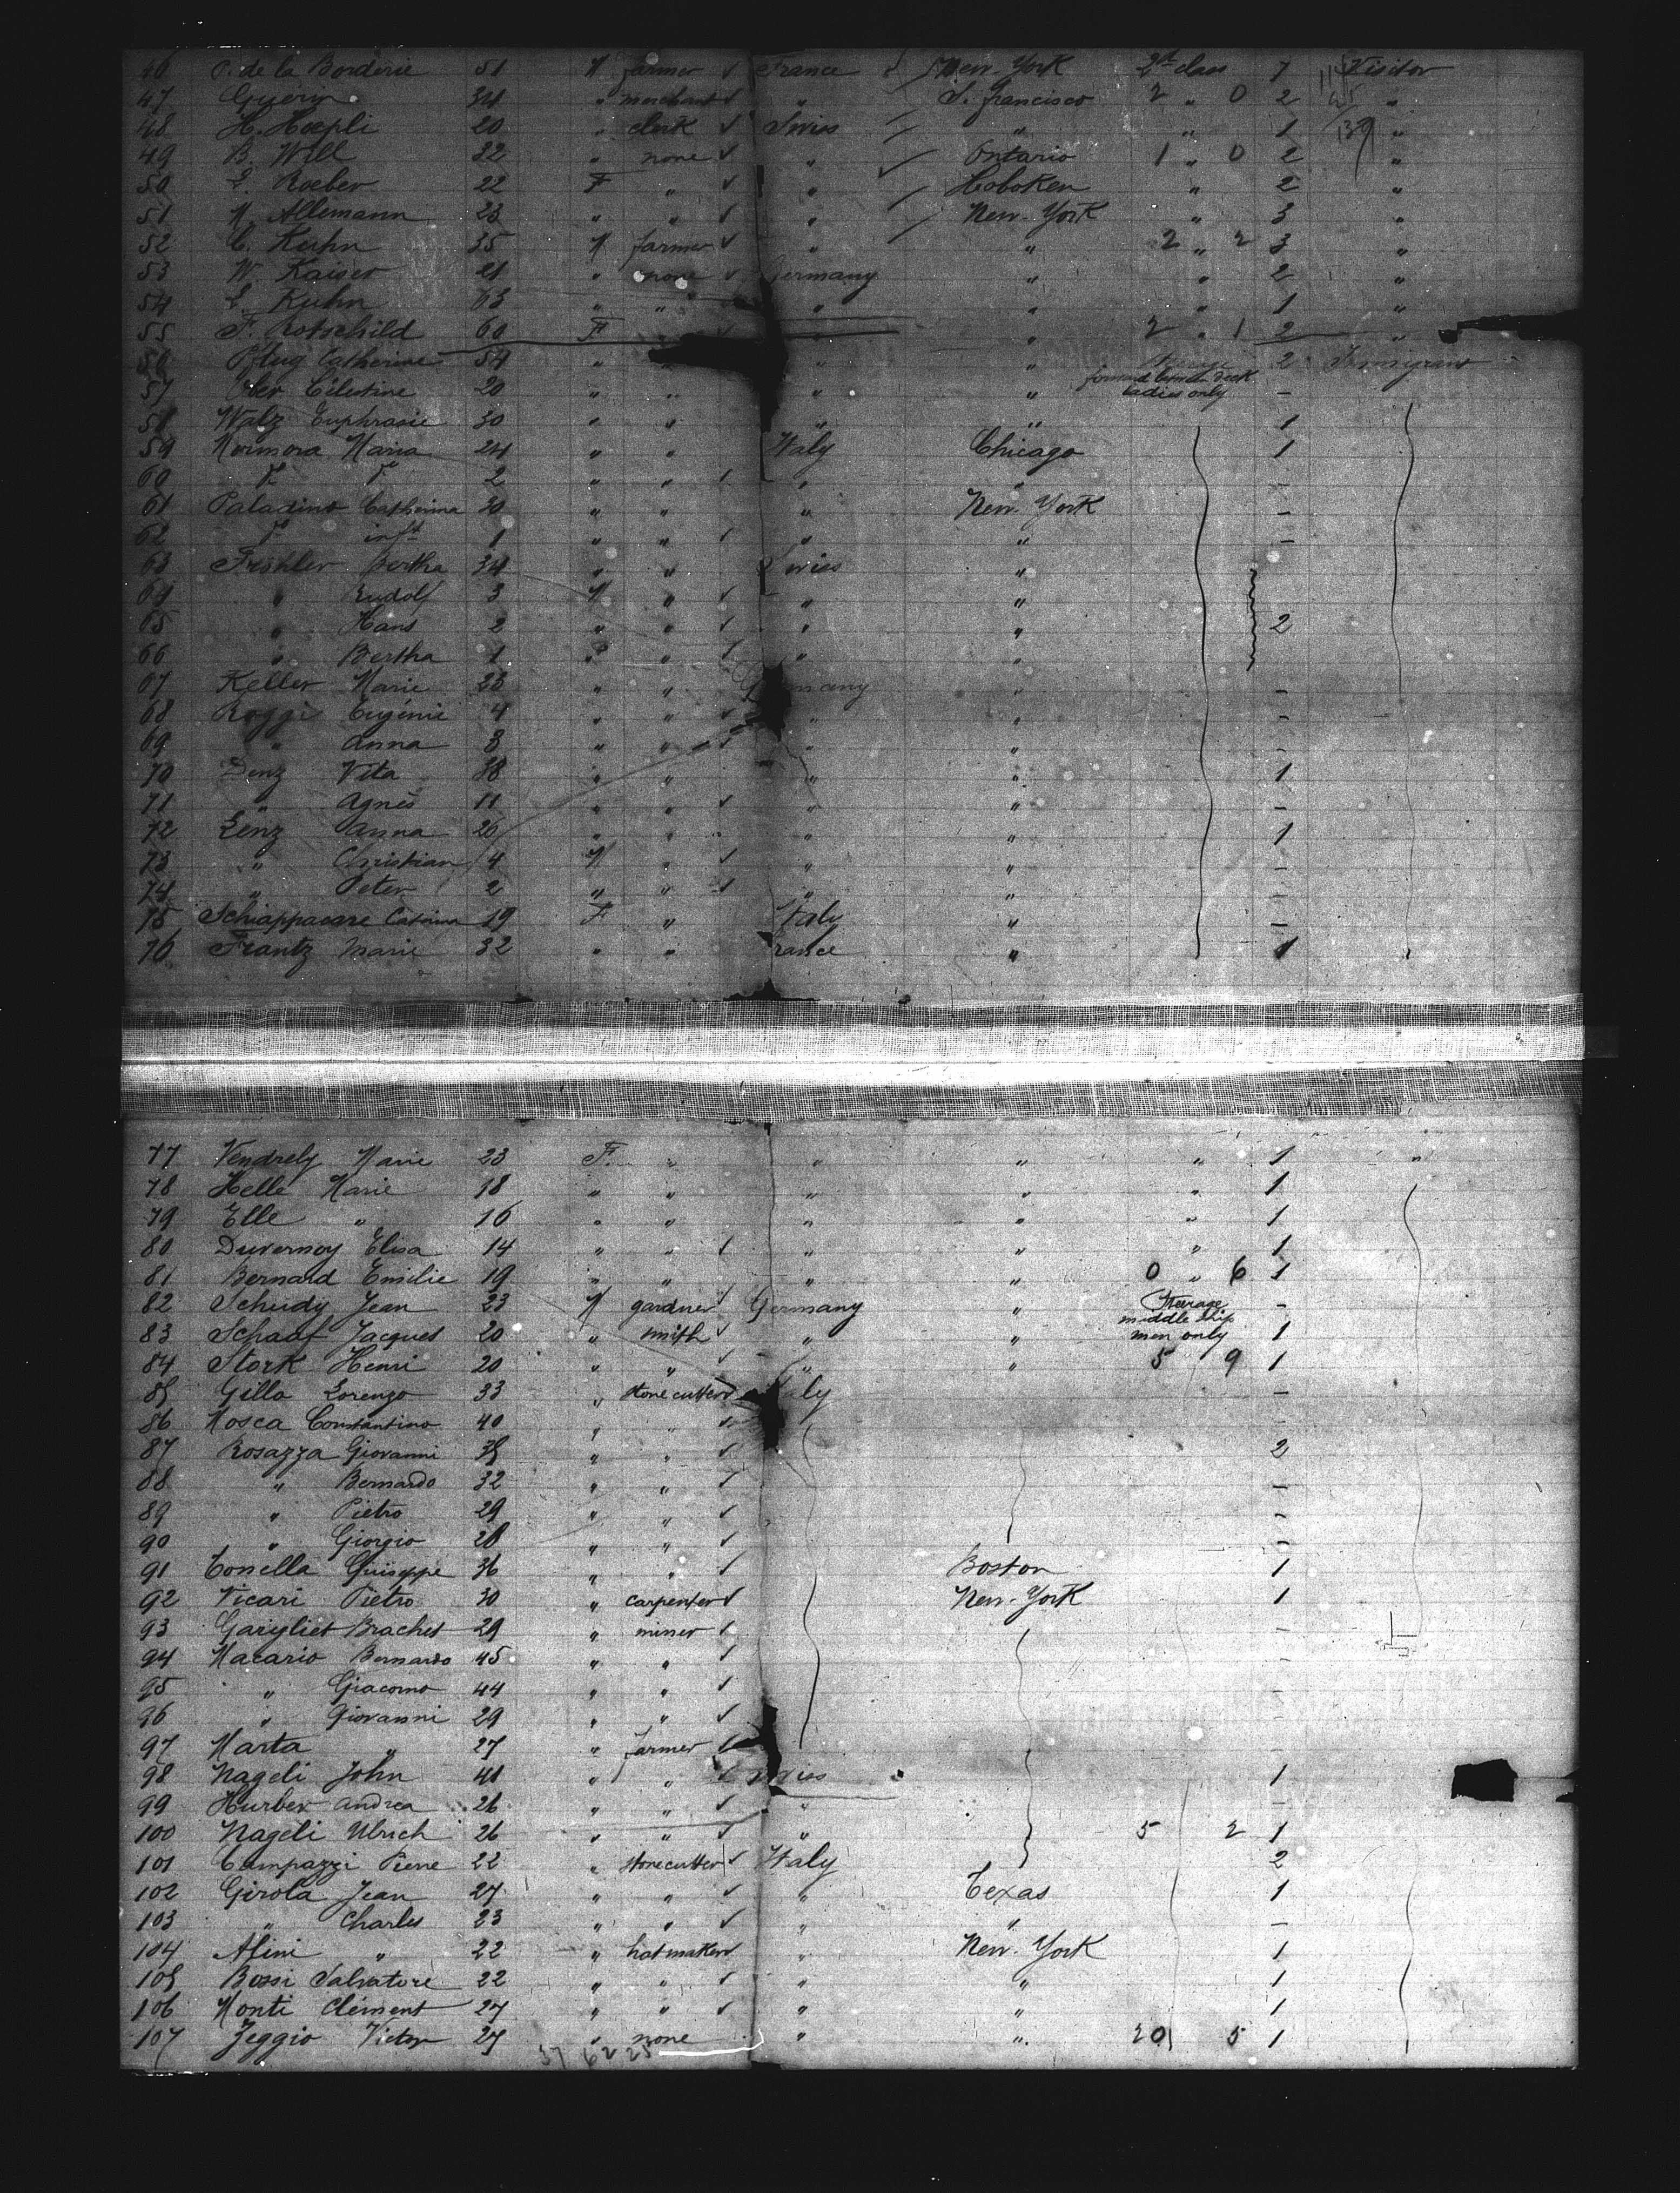 46 P. de la Borderie 51 M farmer ✓ France New-York 2d class 7 Visitor
47 Guérin 34 " merchant ✓ " S. francisco 2 " 0 2 "
48 H. Hoepli 20 " clerk ✓ Swiss " " 1 "
49 B. Will 32 " none ✓ " Ontario 1 " 0 2 "
50 E. Roeber 22 F " ✓ " Hoboken " 2 "
51 M. Allemann 23 " " ✓ " New-York " 3 "
52 C. Kuhn 35 M farmer ✓ " " 2 " 2 3 "
53 W. Kaiser 21 " none ✓ Germany " " 2 "
54 E. Kuhn 63 " " " " " 1 "
55 F. Rotschild 60 F " ✓ " " 2 " 1 2 "
56 Pflug Catherine 54 " " " " 2 Immigrant
57 Célestine 20 " " " " ladies only –
58 Walz Euphrasie 30 " " " " 1
59 Mormora Maria 24 " " Italy Chicago 1
60 " " 2 " " ✓ " " –
61 Paladino Catherina 30 " " " New-York –
62 " inft 1 " " ✓ " " –
63 Bertha 34 " " Swiss "
64 " Rudolf 3 M " ✓ " "
65 " Hans 2 " " ✓ " " 2
66 " Bertha 1 " " ✓ " "
67 Keller Marie 23 " " Germany " –
68 Roggi Eugénie 4 " " ✓ " " –
69 " Anna 3 " " ✓ " " –
70 Denz Vita 38 " " " " 1
71 " Agnès 11 " " ✓ " " –
72 Lenz Anna 26 " " " " 1
73 " Christian 4 M " ✓ " " –
74 " Peter 2 " " ✓ " " –
75 Schiappacare 19 F " Italy " –
76 Frantz Marie 32 " " France " 1
77 Vendrely Marie 23 F. " " " " 1 "
78 Helle Marie 18 " " " " " 1
79 Elle " 16 " " " " " 1
80 Duvernoy Elisa 14 " " ✓ " " " 1
81 Bernard Emilie 19 " " " " 0 " 6 1
82 Scheidy Jean 23 M gardner ✓ Germany " Steerage –
middle ship
83 Schaaf Jacques 20 " smith ✓ " " men only 1
84 Stork Henri 20 " " ✓ " " 5 9 1
85 Gilla Lorenzo 33 " stone cutter ✓ Italy –
86 Mosca Constantino 40 " " ✓ –
87 Rosazza Giovanni 35 " " ✓ 2
88 " Bernardo 32 " " ✓ –
89 " Pietro 29 " " ✓ –
90 " Giorgio 28 " " ✓ –
91 Tonella Guiseppe 36 " " ✓ Boston 1
92 Vicari Pietro 30 " carpenter ✓ New-York 1
93 Braches 29 " miner ✓ –
94 Macario Bernardo 45 " " ✓ –
95 " Giacomo 44 " " ✓ –
96 " Giovanni 29 " " ✓ –
97 Marta " 27 " farmer ✓ –
98 Nageli John 41 " " ✓ Swiss 1
99 Hurber Andrea 26 " " ✓ " –
100 Nageli Ulrich 26 " " ✓ " 5 2 1
101 Campazzi Pierre 22 " stonecutter ✓ Italy 2
102 Girola Jean 27 " " ✓ " Texas 1
103 " Charles 23 " " ✓ " " –
104 Afini " 22 " hatmaker ✓ " New-York 1
105 Bossi Salvatore 22 " " ✓ " " 1
106 Monti Clément 27 " " ✓ " " 1
107 Zeggio Victor 27 " none " " 20 5 1
37 62 25